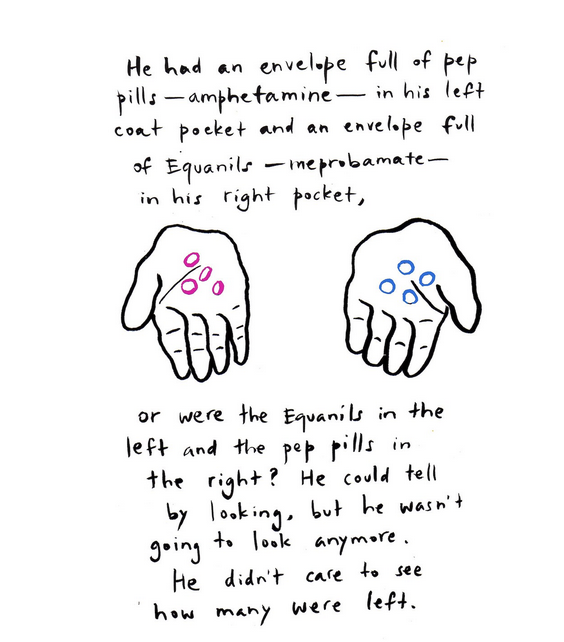 He had an envelope full of pep
pills — amphetamine — in his left
coat pocket and an envelope full
of Equanils — meprobamate —
in his right pocket,
or were the Equanils in the
left and the pep pills in
the right? He could tell
by looking, but he wasn't
going to look anymore.
He didn't care to see
how many were left.